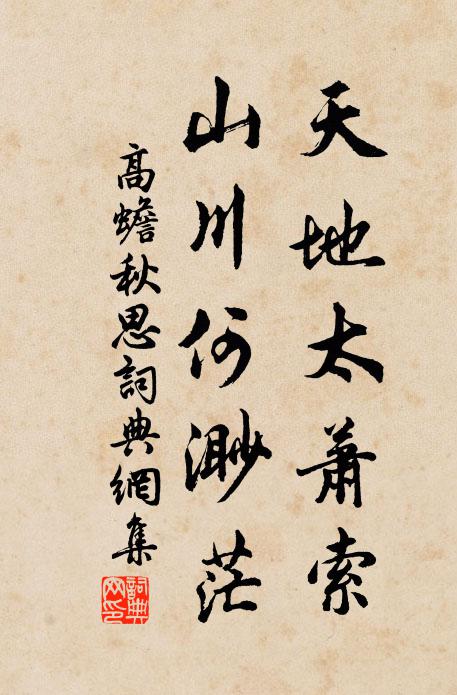 天地太蕭索
山川何渺茫
高蟾秋思詞典網集
詞典网印